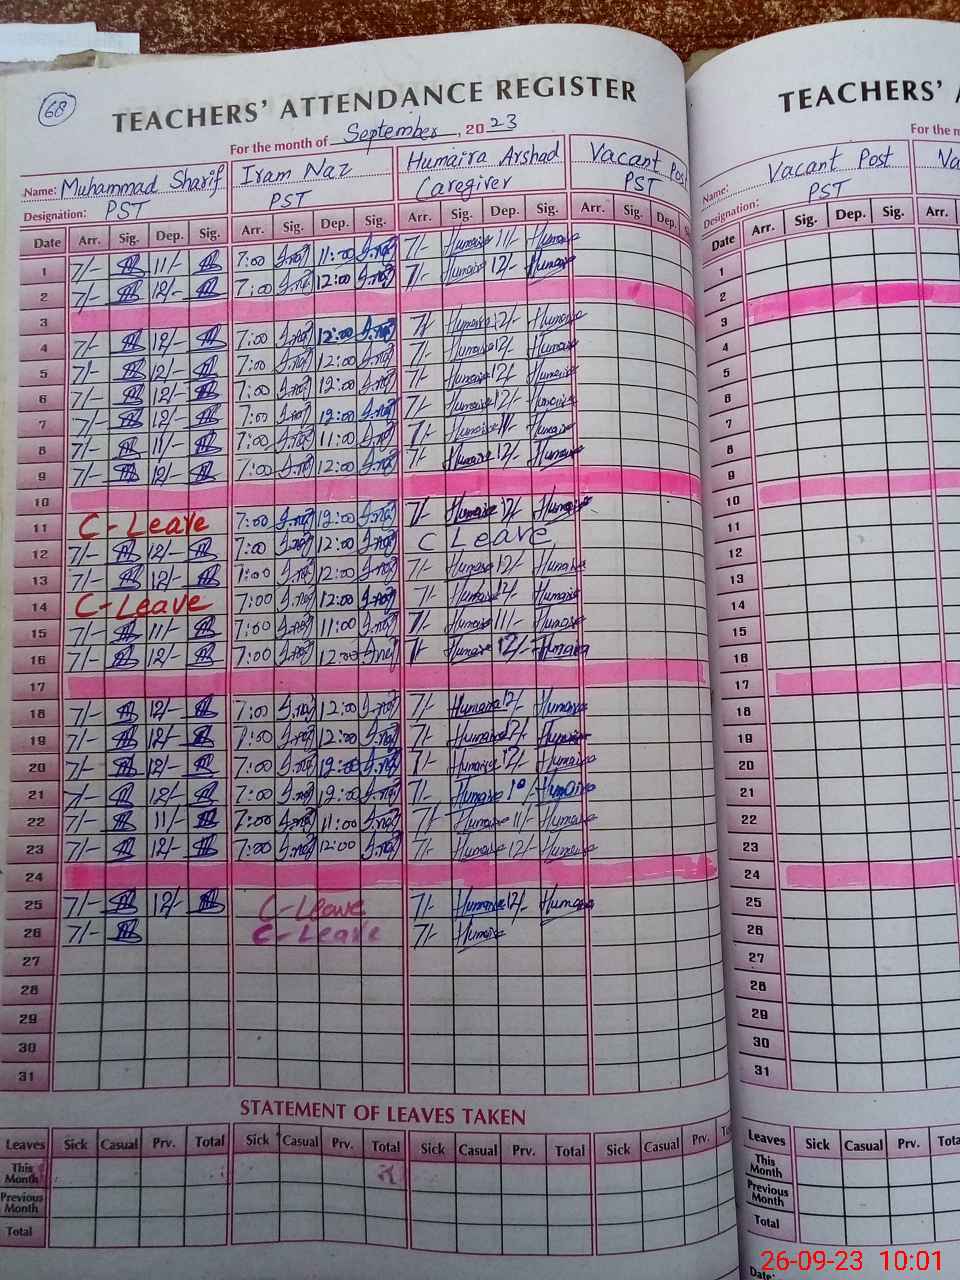 68
TEACHERS' ATTENDANCE REGISTER
For the month of September, 2023
Name: Muhammad Sharif Iram Naz Humaira Arshad Vacant Post
Designation: PST PST Caregiver PST
Date Arr. Sig. Dep. Sig. Arr. Sig. Dep. Sig. Arr. Sig. Dep. Sig. Arr. Sig. Dep.
1 7/- 11/- 7:00 I.naz 11:00 I.naz 7/- Humaira 11/- Humaira
2 7/- 12/- 7:00 I.naz 12:00 I.naz 7/- Humaira 12/- Humaira
3
4 7/- 12/- 7:00 I.naz 12:00 I.naz 7/- Humaira 12/- Humaira
5 7/- 12/- 7:00 I.naz 12:00 I.naz 7/- Humaira 12/- Humaira
6 7/- 12/- 7:00 I.naz 12:00 I.naz 7/- Humaira 12/- Humaira
7 7/- 12/- 7:00 I.naz 12:00 I.naz 7/- Humaira 12/- Humaira
8 7/- 11/- 7:00 I.naz 11:00 I.naz 7/- Humaira 11/- Humaira
9 7/- 12/- 7:00 I.naz 12:00 I.naz 7/- Humaira 12/- Humaira
10
11 C-Leave 7:00 I.naz 12:00 I.naz 7/- Humaira 12/- Humaira
12 7/- 12/- 7:00 I.naz 12:00 I.naz C Leave
13 7/- 12/- 7:00 I.naz 12:00 I.naz 7/- Humaira 12/- Humaira
14 C-Leave 7:00 I.naz 12:00 I.naz 7/- Humaira 12/- Humaira
15 7/- 11/- 7:00 I.naz 11:00 I.naz 7/- Humaira 11/- Humaira
16 7/- 12/- 7:00 I.naz 12:00 I.naz 7/- Humaira 12/- Humaira
17
18 7/- 12/- 7:00 I.naz 12:00 I.naz 7/- Humaira 12/- Humaira
19 7/- 12/- 7:00 I.naz 12:00 I.naz 7/- Humaira 12/- Humaira
20 7/- 12/- 7:00 I.naz 12:00 I.naz 7/- Humaira 12/- Humaira
21 7/- 12/- 7:00 I.naz 12:00 I.naz 7/- Humaira Humaira
22 7/- 11/- 7:00 I.naz 11:00 I.naz 7/- Humaira 11/- Humaira
23 7/- 12/- 7:00 I.naz 12:00 I.naz 7/- Humaira 12/- Humaira
24
25 7/- 12/- C-Leave 7/- Humaira 12/- Humaira
26 7/- C-Leave 7/- Humaira
27
28
29
30
31
STATEMENT OF LEAVES TAKEN
Leaves Sick Casual Prv. Total Sick Casual Prv. Total Sick Casual Prv. Total Sick Casual Prv.
This Month
Previous Month
Total
TEACHERS'
For the
Name: Vacant Post
Designation: PST
Date Arr. Sig. Dep. Sig. Arr.
1
2
3
4
5
6
7
8
9
10
11
12
13
14
15
16
17
18
19
20
21
22
23
24
25
26
27
28
29
30
31
Leaves Sick Casual Prv.
This Month
Previous Month
Total
Date:
26-09-23 10:01